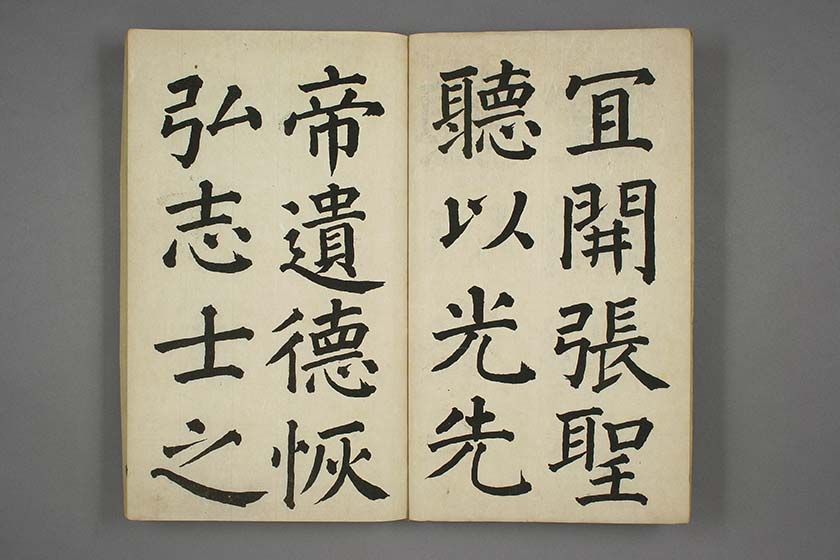 冝開張聖
聽以光先
帝遺德恢
弘志士之